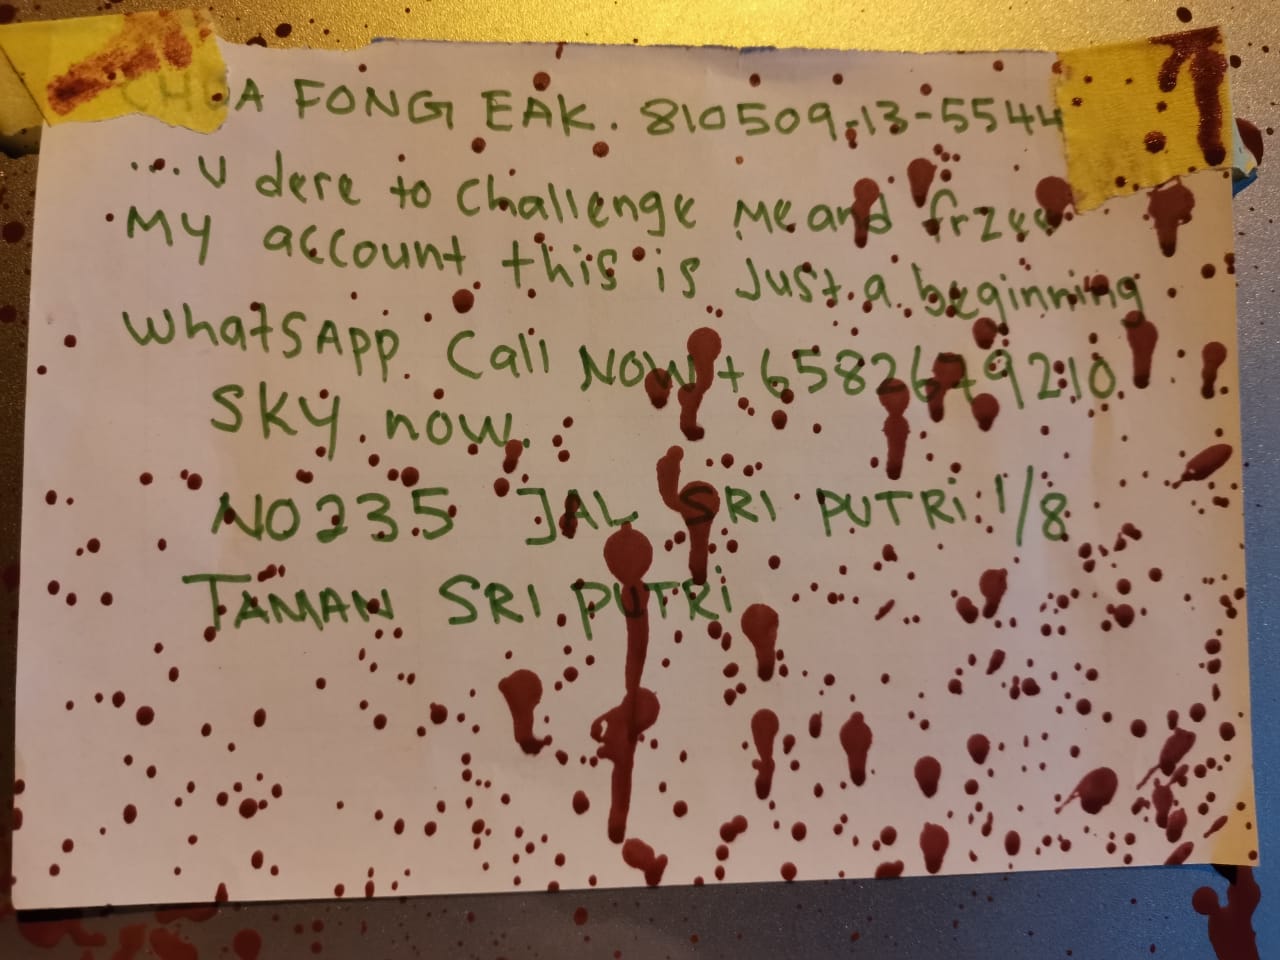 CHUA FONG EAK. 810509-13-5544
... U dere to challenge me and frzee
MY account this is just a beginning
WhatsAPP Call NOW +6582679210
SKY now.
NO 235 JAL SRI PUTRi 1/8
TAMAN SRI PUTRi